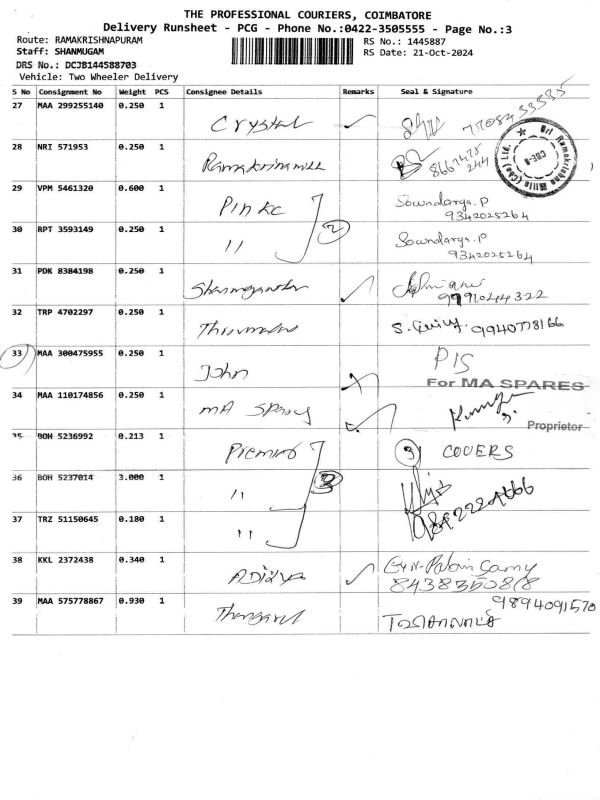 THE PROFESSIONAL COURIERS, COIMBATORE
Delivery Runsheet - PCG - Phone No.:0422-3505555 - Page No.:3
Route: RAMAKRISHNAPURAM RS No.: 1445887
Staff: SHANMUGAM RS Date: 21-Oct-2024
DRS No.: DCJB144588703
Vehicle: Two Wheeler Delivery
S No Consignment No Weight PCS Consignee Details Remarks Seal & Signature
27 MAA 299255140 0.250 1 Crystal
28 NRI 571953 0.250 1 Ramakrishna mill 8667478244
Sri Ramakrishna Mills (Cbe) Ltd. CBE-6
29 VPM 5461320 0.600 1 Pinkc Soundarya.P
9342025264
2
30 RPT 3593149 0.250 1 " Soundarya.P
9342025264
31 PDK 8384198 0.250 1
32 TRP 4702297 0.250 1 9940778166
33 MAA 300475955 0.250 1 John PIS
For MA SPARES
34 MAA 110174856 0.250 1 MA Spares
Proprietor
35 BOH 5236992 0.213 1 3 COVERS
36 BOH 5237014 3.000 1 " 3
37 TRZ 51150645 0.180 1 "
38 KKL 2372438 0.340 1 Adidya
39 MAA 575778867 0.930 1 Thangavel 9894091570